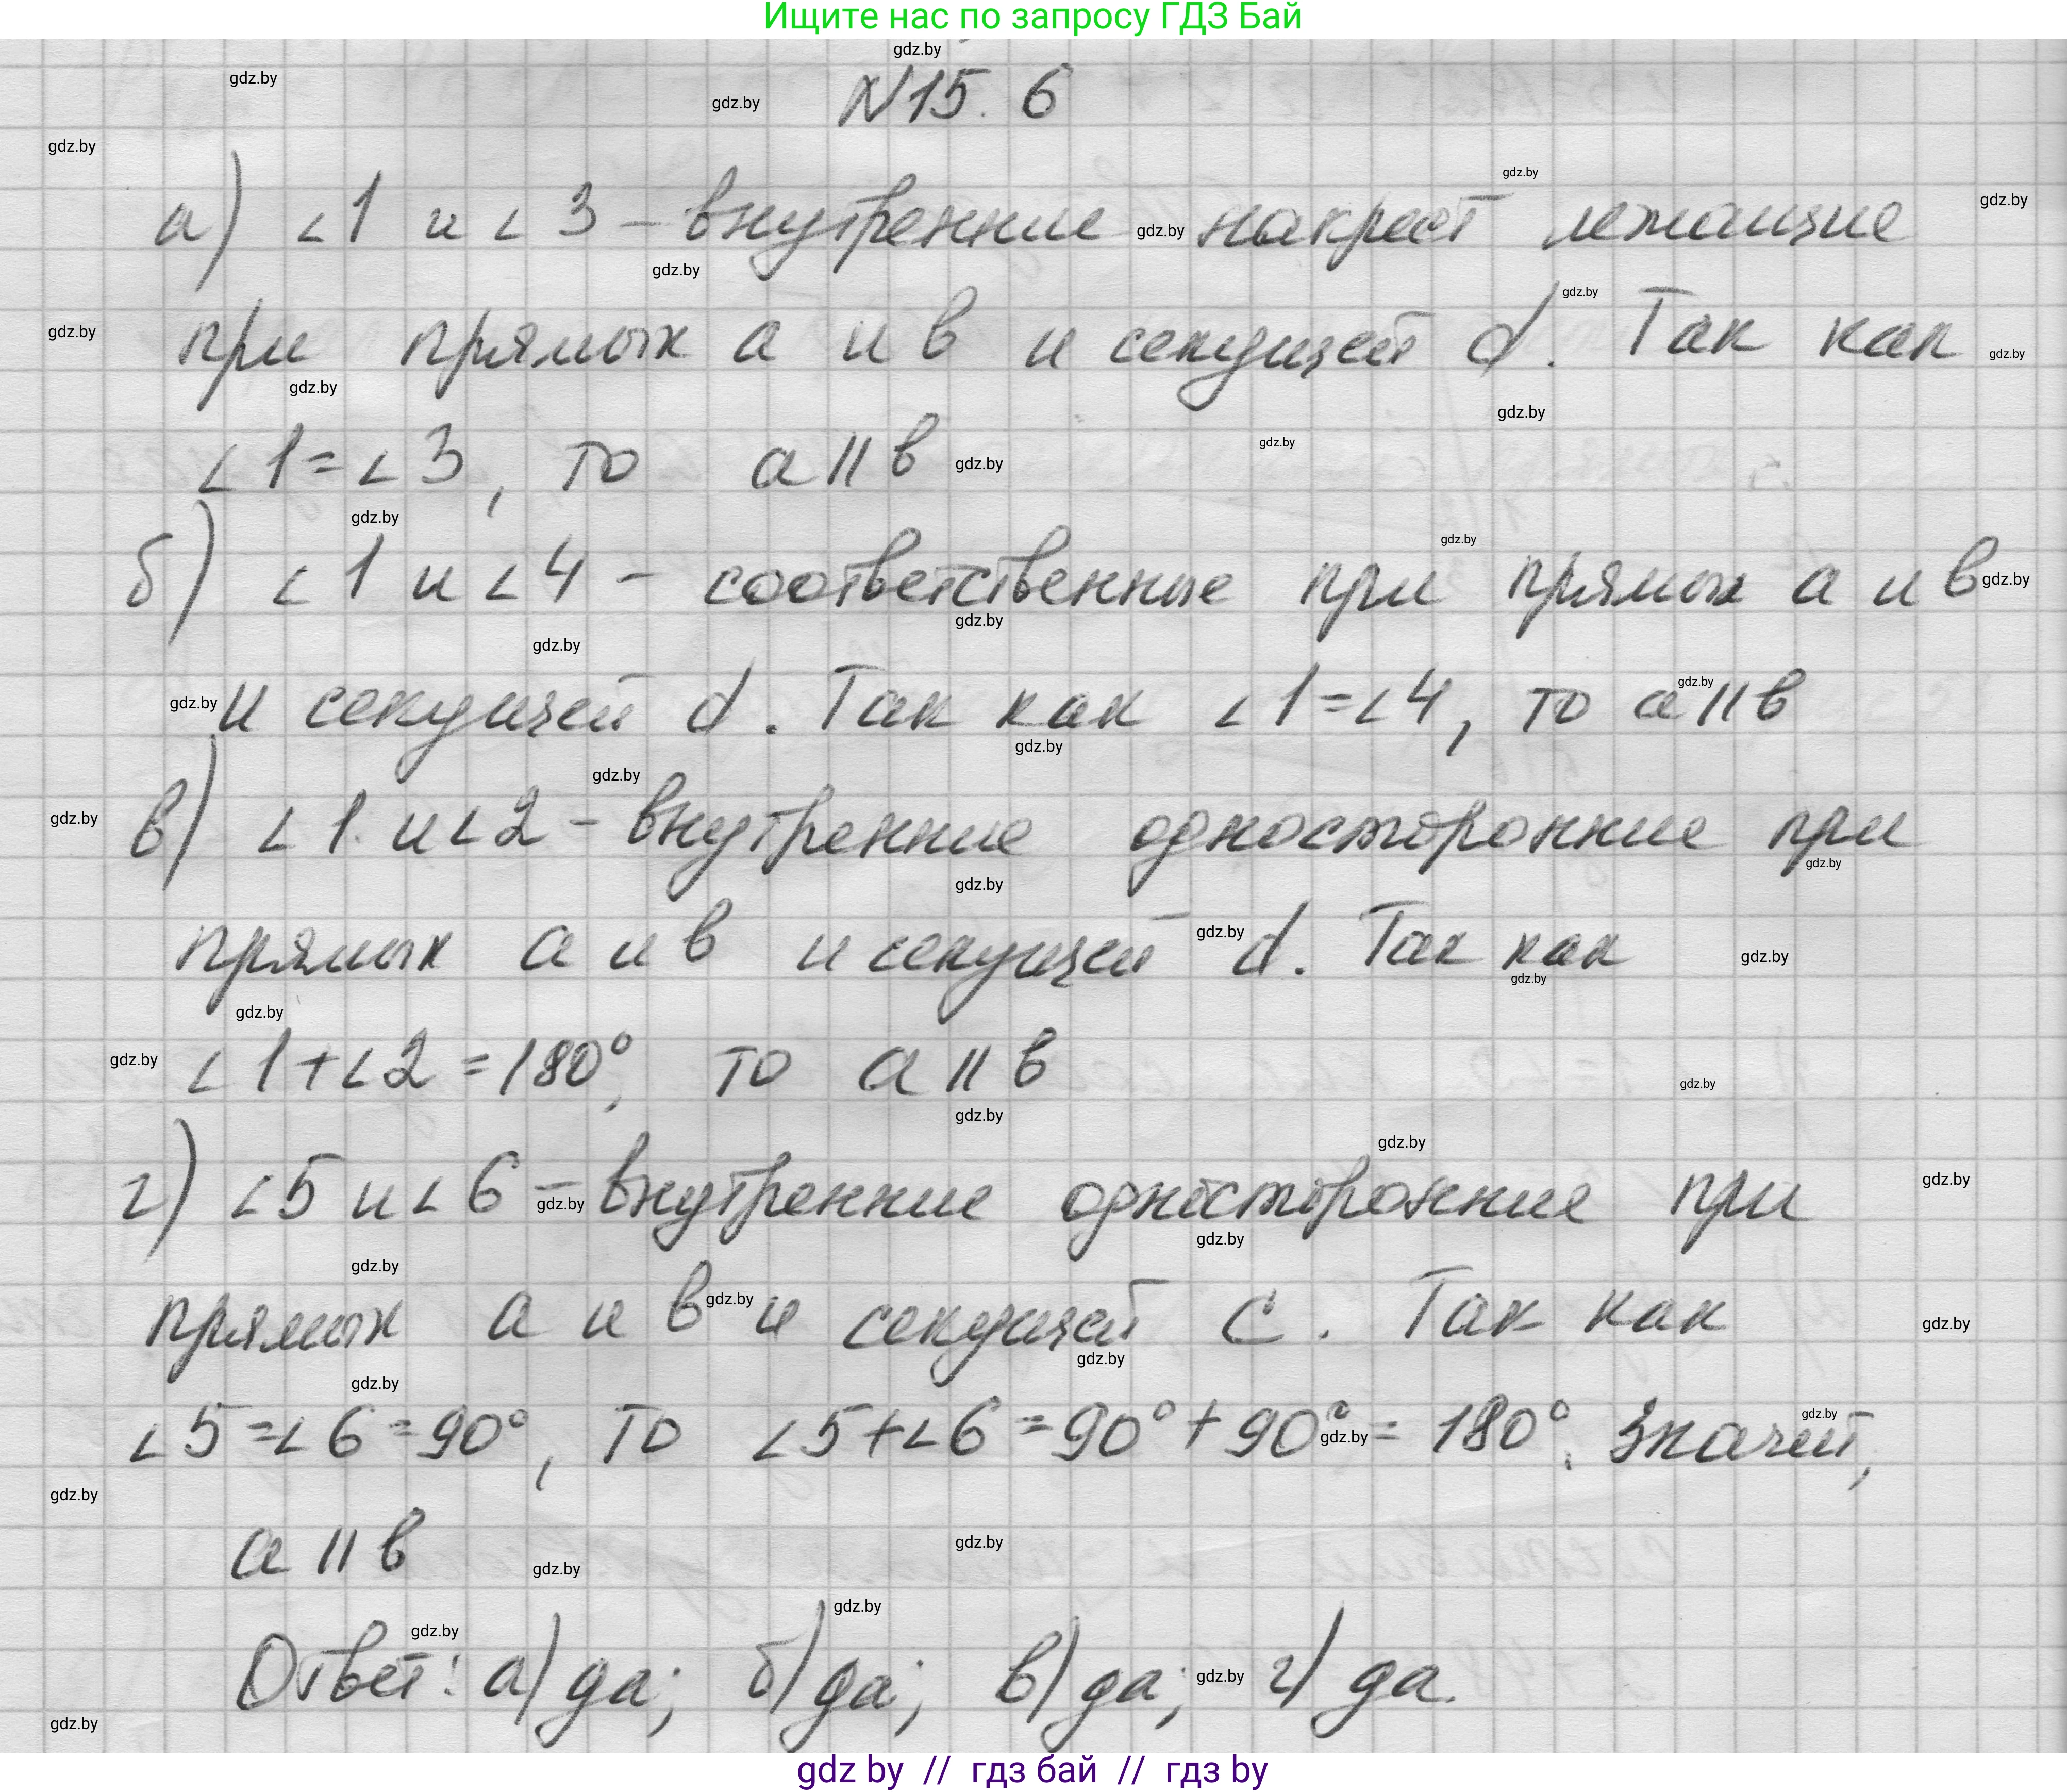 Ищите нас по запросу ГДЗ Бай
gdz.by
N15. 6
а) ∠1 и ∠3 – внутренние накрест лежащие
при прямых а и в и секущей d. Так как
∠1=∠3, то а || в
б) ∠1 и ∠4 – соответственные при прямых а и в
и секущей d. Так как ∠1=∠4, то а || в
в) ∠1 и ∠2 – внутренние односторонние при
прямых а и в и секущей d. Так как
∠1+∠2=180°, то а || в
г) ∠5 и ∠6 – внутренние односторонние при
прямых а и в и секущей с. Так как
∠5=∠6=90°, то ∠5+∠6=90°+90°=180°. Значит,
а || в
Ответ: а) да; б) да; в) да; г) да.
gdz by // гдз бай // гдз by